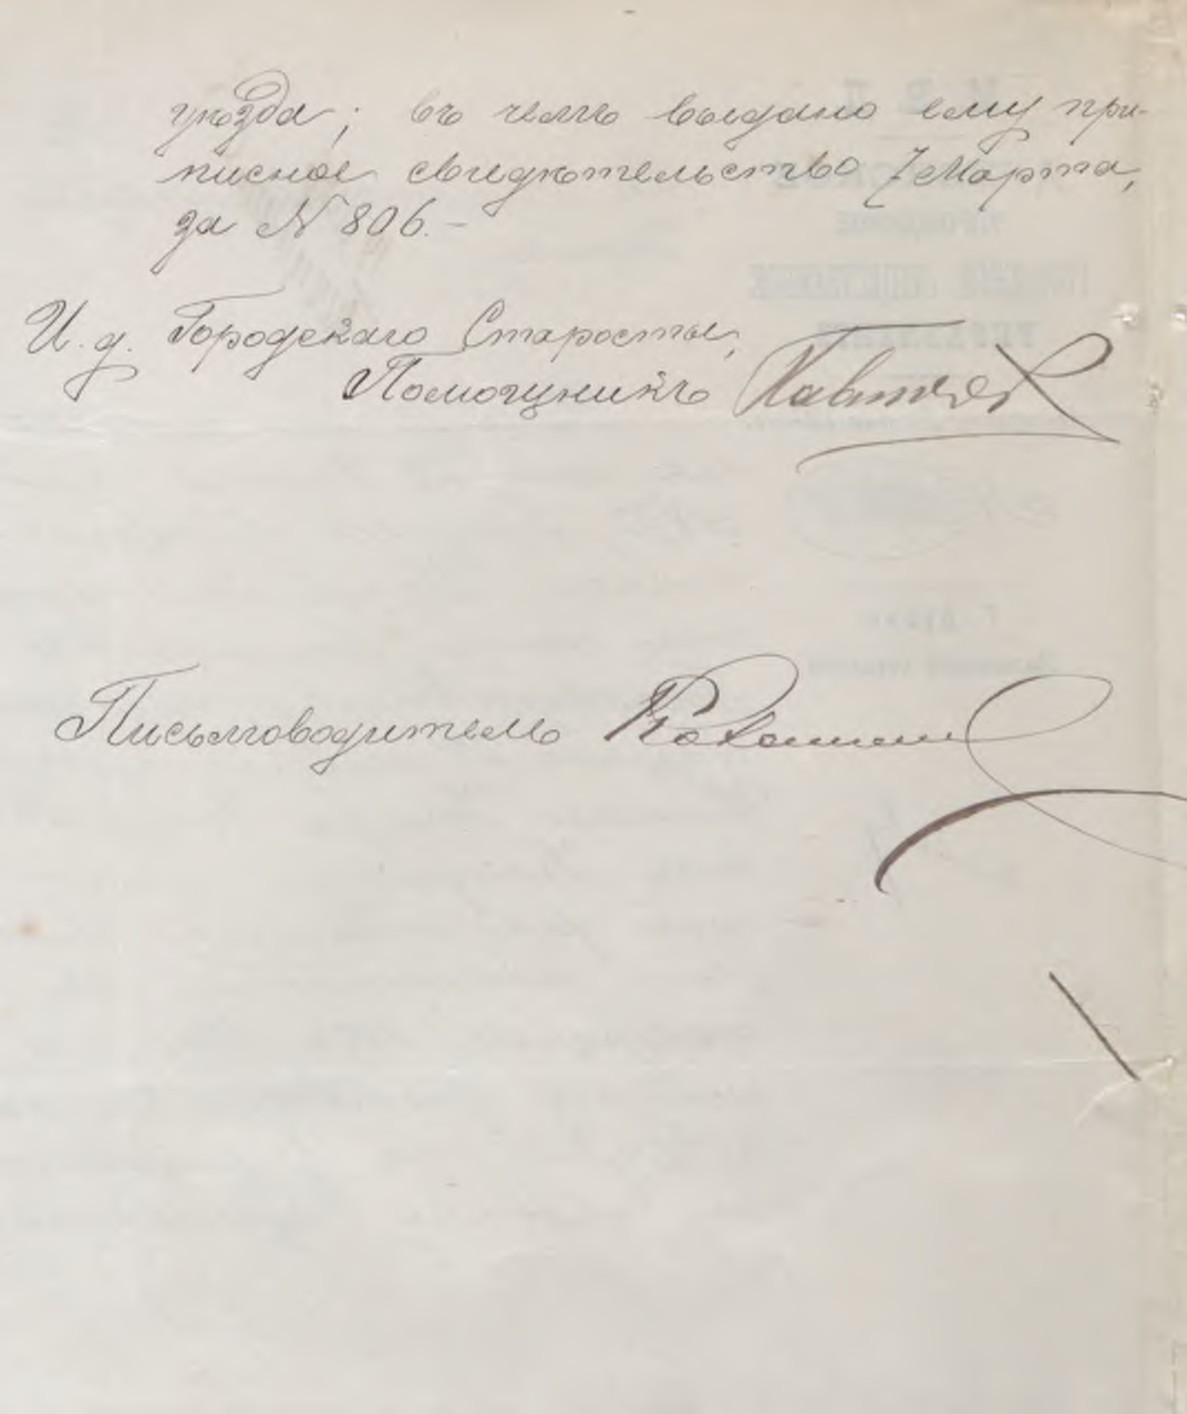 уѣзда; въ чемъ выдано ему при-
писное свидѣтельство 7 Марта,
за N 806.-
И. д. Городскаго Старосты,
Помощникъ
Письмоводитель